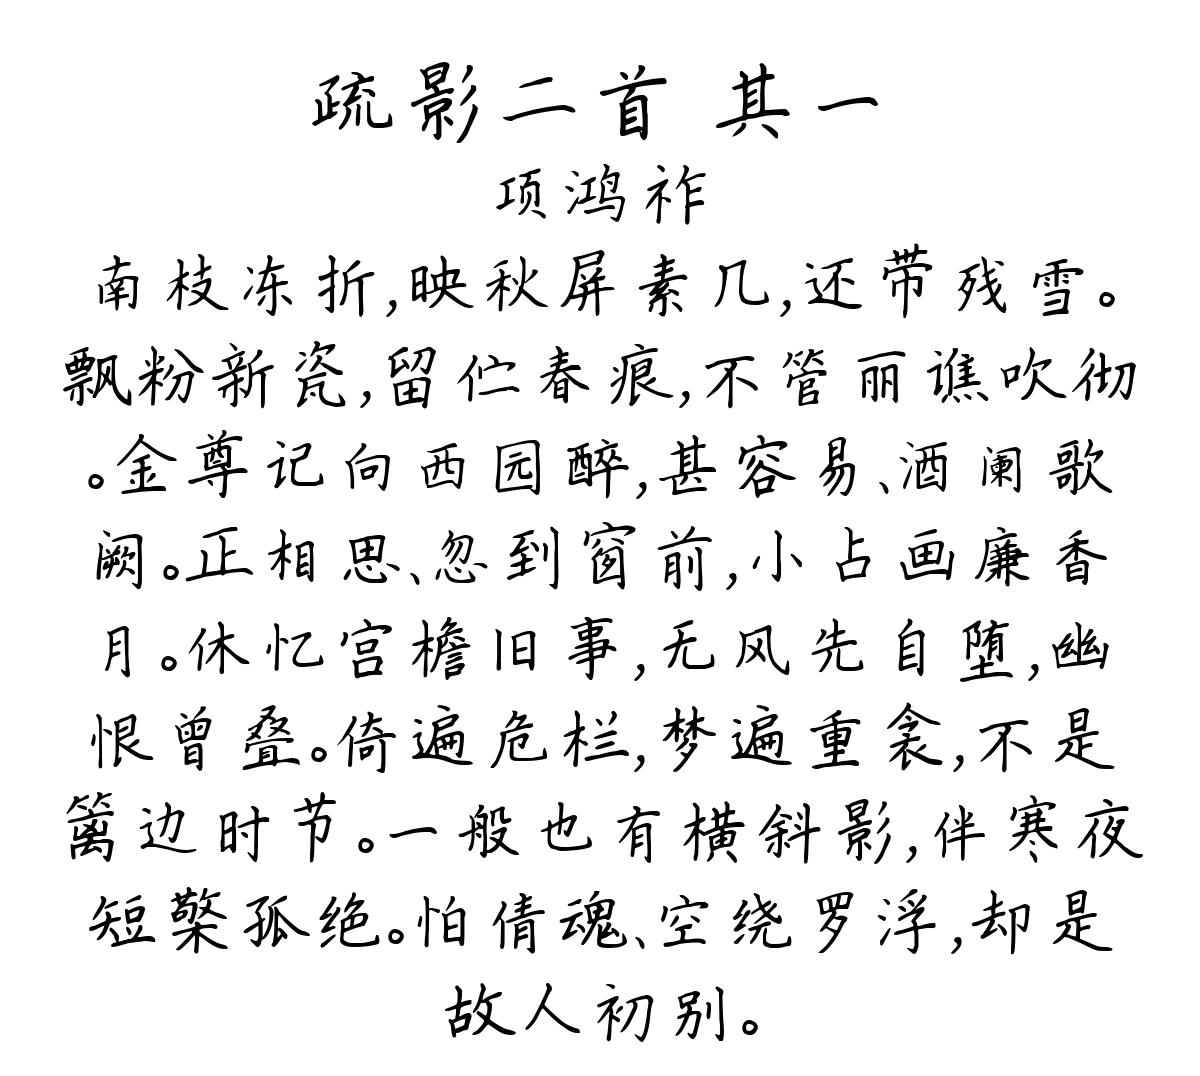 疏影二首 其一
项鸿祚
南枝冻折,映秋屏素几,还带残雪。
飘粉新瓷,留伫春痕,不管丽谯吹彻
。金尊记向西园醉,甚容易、酒阑歌
阙。正相思、忽到窗前,小占画廉香
月。休忆宫檐旧事,无风先自堕,幽
恨曾叠。倚遍危栏,梦遍重衾,不是
篱边时节。一般也有横斜影,伴寒夜
短檠孤绝。怕倩魂、空绕罗浮,却是
故人初别。